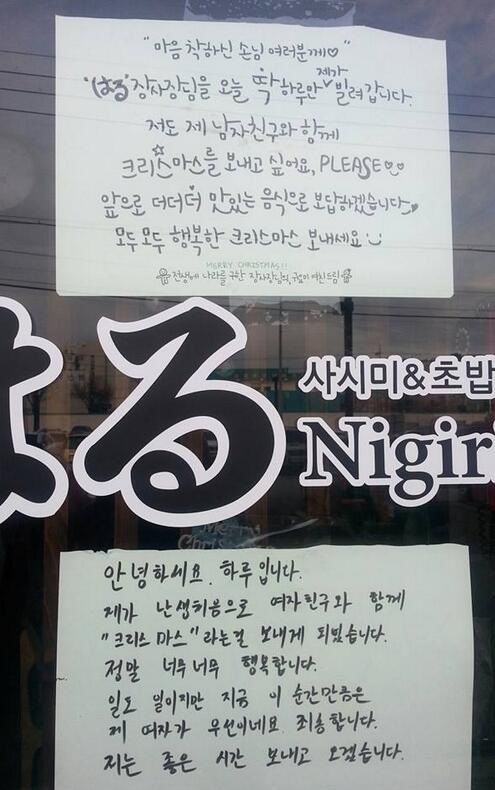 "마음 착하신 손님 여러분께♡"
"はる" 장사장님을 오늘 딱 하루만 제가 빌려갑니다.
저도 제 남자친구와 함께
크리스마스를 보내고 싶어요, PLEASE
앞으로 더더더 맛있는 음식으로 보답하겠습니다
모두모두 행복한 크리스마스 보내세요
MERRY CHRISTMAS!!
전생에 나라를 구한 장사장님의, 귀요미 여친드림
はる
사시미&초밥
Nigiri
Merry
Christmas
안녕하세요. 하루입니다.
제가 난생처음으로 여자친구와 함께
"크리스마스"라는걸 보내게 되었습니다.
정말 너무너무 행복합니다.
일도 일이지만 지금 이 순간만큼은
제 여자가 우선이네요. 죄송합니다.
저는 좋은 시간 보내고 오겠습니다.